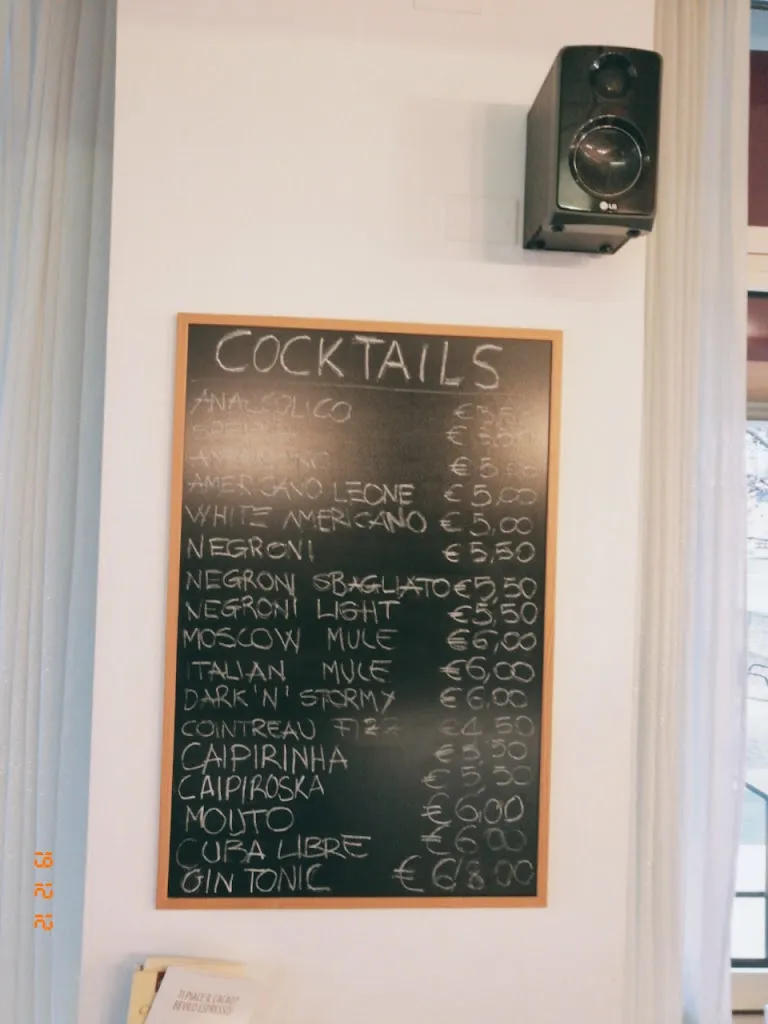 LG
COCKTAILS
ANALCOLICO € 3,50
€
€ 5,
AMERICANO LEONE € 5,00
WHITE AMERICANO € 5,00
NEGRONI € 5,50
NEGRONI SBAGLIATO € 5,50
NEGRONI LIGHT € 5,50
MOSCOW MULE € 6,00
ITALIAN MULE € 6,00
DARK 'N' STORMY € 6,00
COINTREAU FIZZ € 4,50
CAIPIRINHA € 5,50
CAIPIROSKA € 5,50
MOIJTO € 6,00
CUBA LIBRE € 6,00
GIN TONIC € 6/8,00
19 12 12
TI PIACE IL CACAO?
BEVILO ESPRESSO!